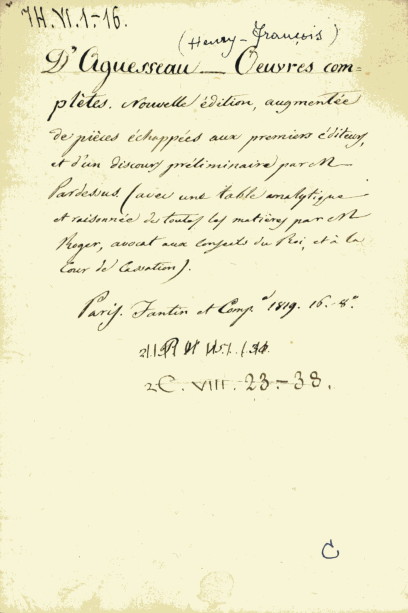 7H.VI.1-16.
(Henry-François)
D'Aguesseau — Oeuvres com=
plètes. Nouvelle édition, augmentée
de pièces échappées aux premiers éditeurs,
et d'un discours préliminaire par M
Pardessus. (avec une table analytique
et raisonnée de toutes les matières par M
Roger, avocat aux conseils du Roi, et à la
Cour de Cassation).
Paris. Fantin et Comp. 1819. 16-8°.
2C. VIII. 23-38.
C